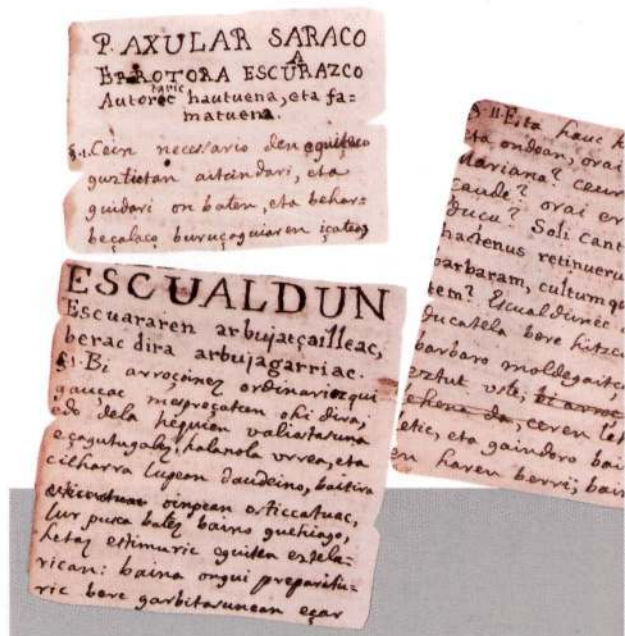 P. AXULAR SARACO
A
ERROTORA ESCURAZCO
taric
Autorec hautuena, eta fa=
matuena.
§.1. Cein necessario den eguiteco
guztietan aitcindari, eta
guidari on baten, eta behar=
beçalaco buruçaguiaren içateaz
ESCUALDUN
Escuararen arbujatçailleac,
berac dira arbujagarriac.
§1. Bi arroçoinez ordinarioz qui
gauçac mespreçatcen ohi dira;
edo dela hequien valiatasuna
eçagutugabez, halanola urrea, eta
cilharra lurpean daudeino, baitira
oinpean osticcatuac,
lur pusca batez baino guehiago,
hetaz estimuric eguitea eztela=
rican: baina ongui preparatu=
ric bere garbitasunean eçar
§.II. Eta hauc
eta ondoan, orai
Mariana? ceur
çaude? orai er
duçu? Soli cant
hactenus retinueru
barbaram, cultumqu
tem? Escualdunec
ducatela bere hitzc
barbaro moldegaitç
eztut uste, ei arroc
lehena da, ceren let
etic, eta gaindoro bai
en haren berri; bain